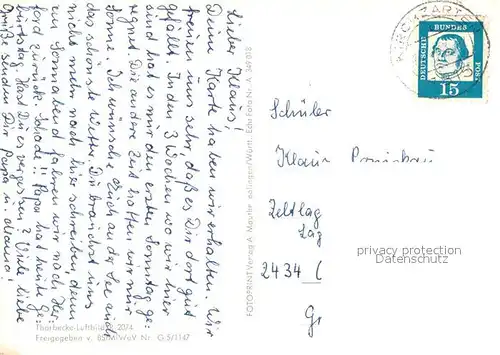 Lieber Klaus!
Deine Karte haben wir erhalten. Wir
freuen uns sehr daß es Dir dort gut
gefällt. In den 3 Wochen wo wir hier
sind hat es nur den ersten Sonntag ge-
regnet. Die andere Zeit hatten wir nur
Sonne. Ich wünsche Euch an der See auch
das schönste Wetter. Du brauchst uns
nicht mehr nach hier schreiben, denn
am Sonnabend fahren wir nach Her-
ford zurück. Schade!! Papa hat heute Ge-
burtstag. Hast Du es vergessen? Viele liebe
Grüße senden Dir Papa u. Mama!
Thorbecke-Luftbild Nr. 2074
Freigegeben v. BStMfWuV Nr. G 5/1147
FOTOPRINT Verlag A. Mauther Esslingen/Württ. Echt Foto Nr. A
KIRCHZARTEN
DEUTSCHE BUNDES POST
15
Schüler
Klaus
Zeltlag
Lag
2434
Gr
privacy protection
Datenschutz